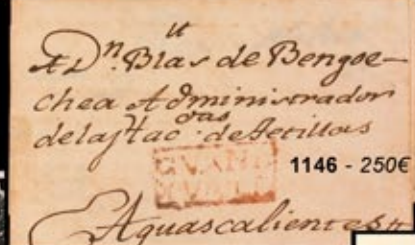 A Dn. Blas de Bengoe-
chea Administrador
de las Hacdas. de Tetillas
GUANA
XUATO
1146 - 250€
Aguascalientes